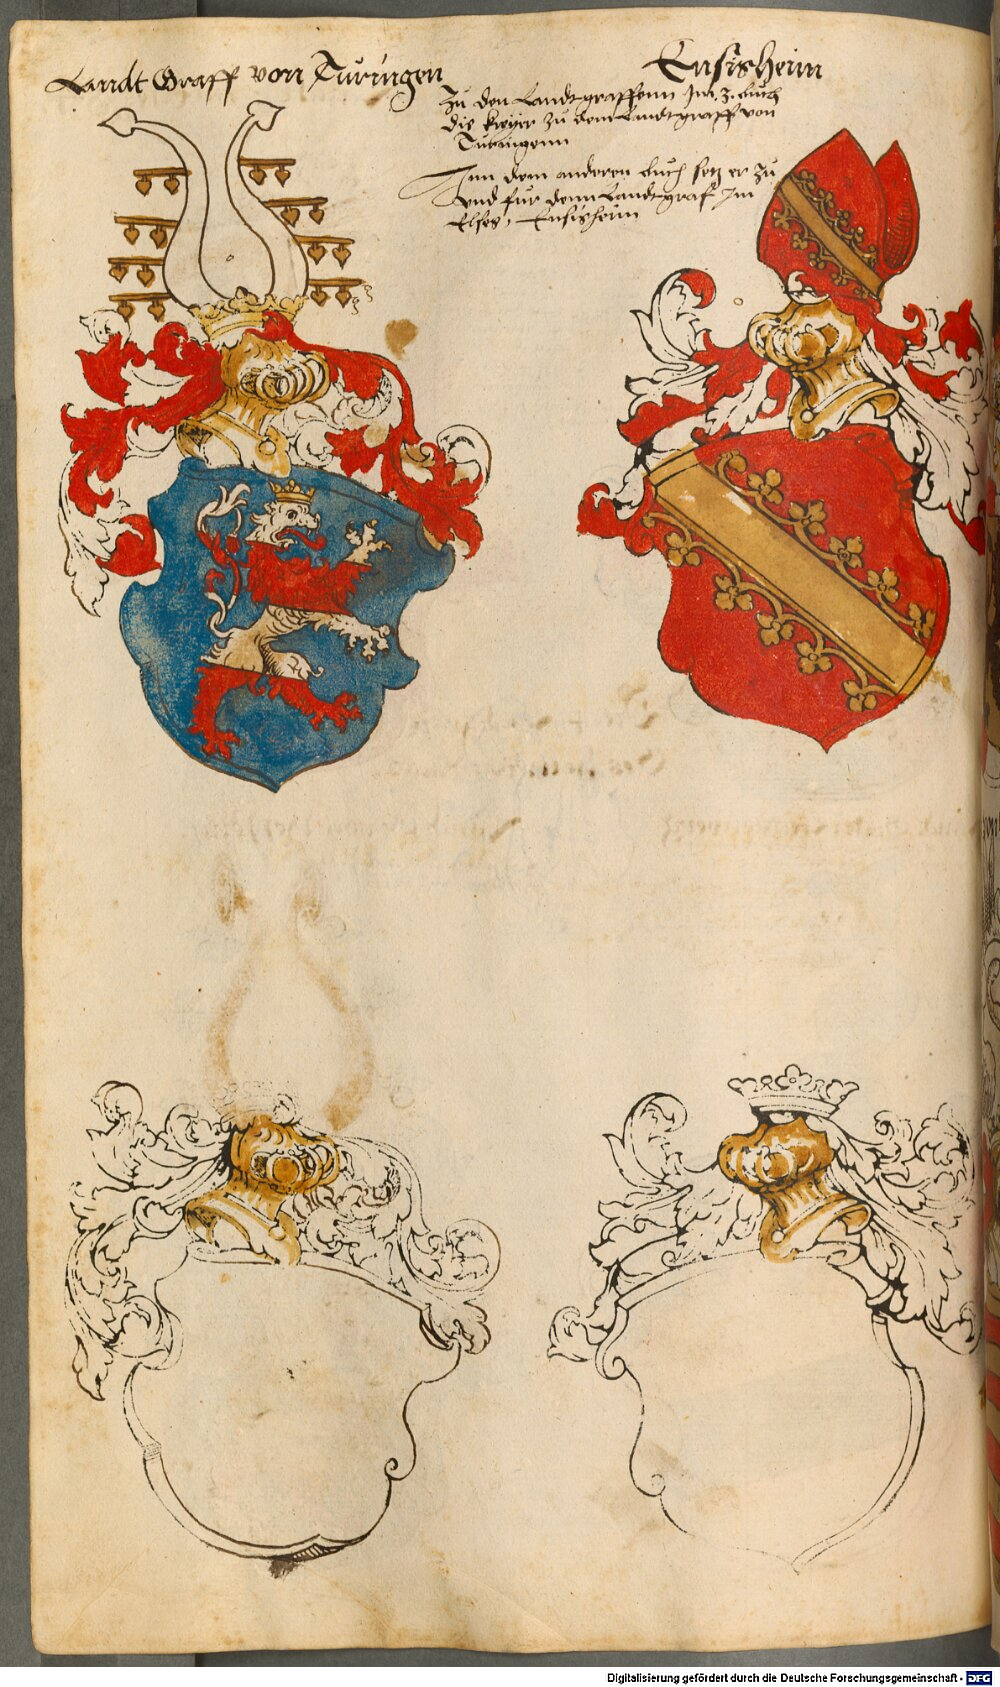 Landt Graff von Turingen
Ensisheim
Zu den Landtgraffenn Im .3. buch
die kleyn zu dem Landtgraff von
Turingenn
Inn dem anderen buch setz er zu
und fur denn Landtgraf Im
Elses, Ensisheim
Digitalisierung gefördert durch die Deutsche Forschungsgemeinschaft - DFG